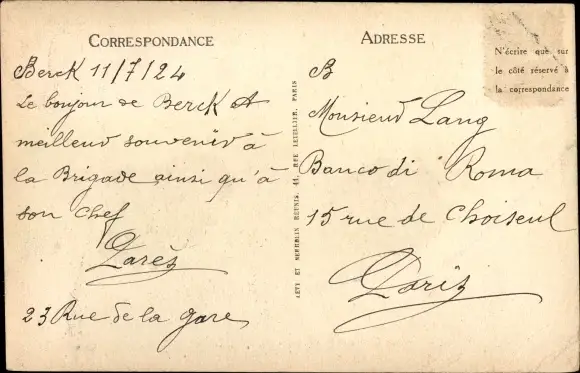 CORRESPONDANCE
Berck 11/7/24
Le bonjour de Berck et
meilleur souvenir à
la Brigade ainsi qu'à
son chef
23 Rue de la gare
ADRESSE
Monsieur Lang
Banco di Roma
15 rue de Choiseul
Paris
N'écrire que sur
le côté réservé à
la correspondance